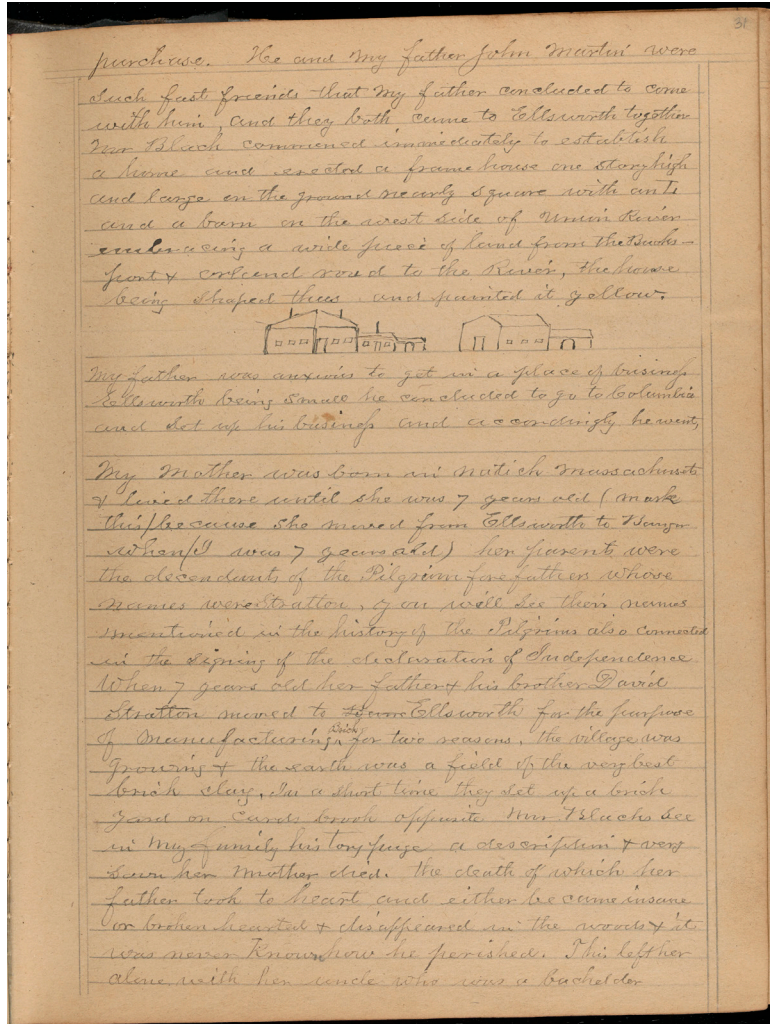 31
purchase. He and my father John Martin were
such fast friends that my father concluded to come
with him, and they both came to Ellsworth together
Mr Black commenced immediately to establish
a home and erected a frame house one story high
and large on the ground nearly square with
and a barn on the west side of Union River
embracing a wide piece of land from the Bucks-
port & orland road to the River, the house
being shaped thus and painted it yellow.
My father was anxious to get in a place of business
Ellsworth being small he concluded to go to Columbia
and set up his business and accordingly he went,
My Mother was born in natick Massachusetts
& lived there until she was 7 years old (mark
this/because she moved from Ellsworth to Bangor
when/I was 7 years old) her parents were
the descendants of the Pilgrim forefathers whose
names were Stratton, you will see their names
mentioned in the history of the Pilgrims also connected
in the signing of the declaration of Independence
When 7 years old her father & his brother David
Stratton moved to Ellsworth for the purpose
of manufacturing Brick for two reasons, the village was
growing & the earth was a field of the very best
brick clay, In a short time they set up a brick
yard on cards brook opposite Mr Blacks see
in my family history page a description & very
soon her mother died. the death of which her
father took to heart and either became insane
or broken hearted & disappeared in the woods & it
was never Known how he perished. This left her
alone with her uncle who was a bacheldor